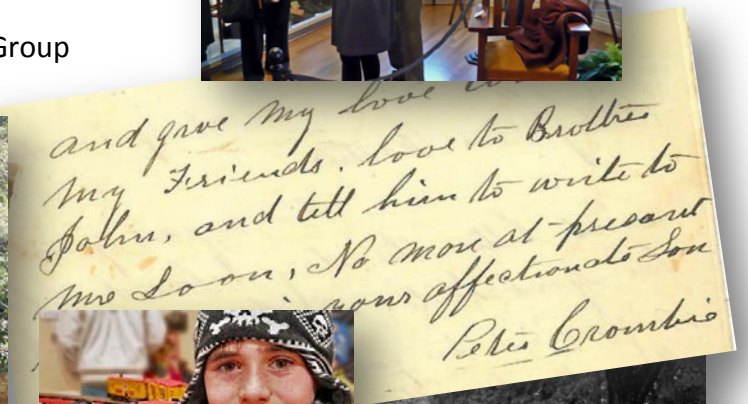 Group
and give my love
my Friends. love to Brother
John, and tell him to write to
me Soon, No more at present
your affectionate Son
Peter Crombie